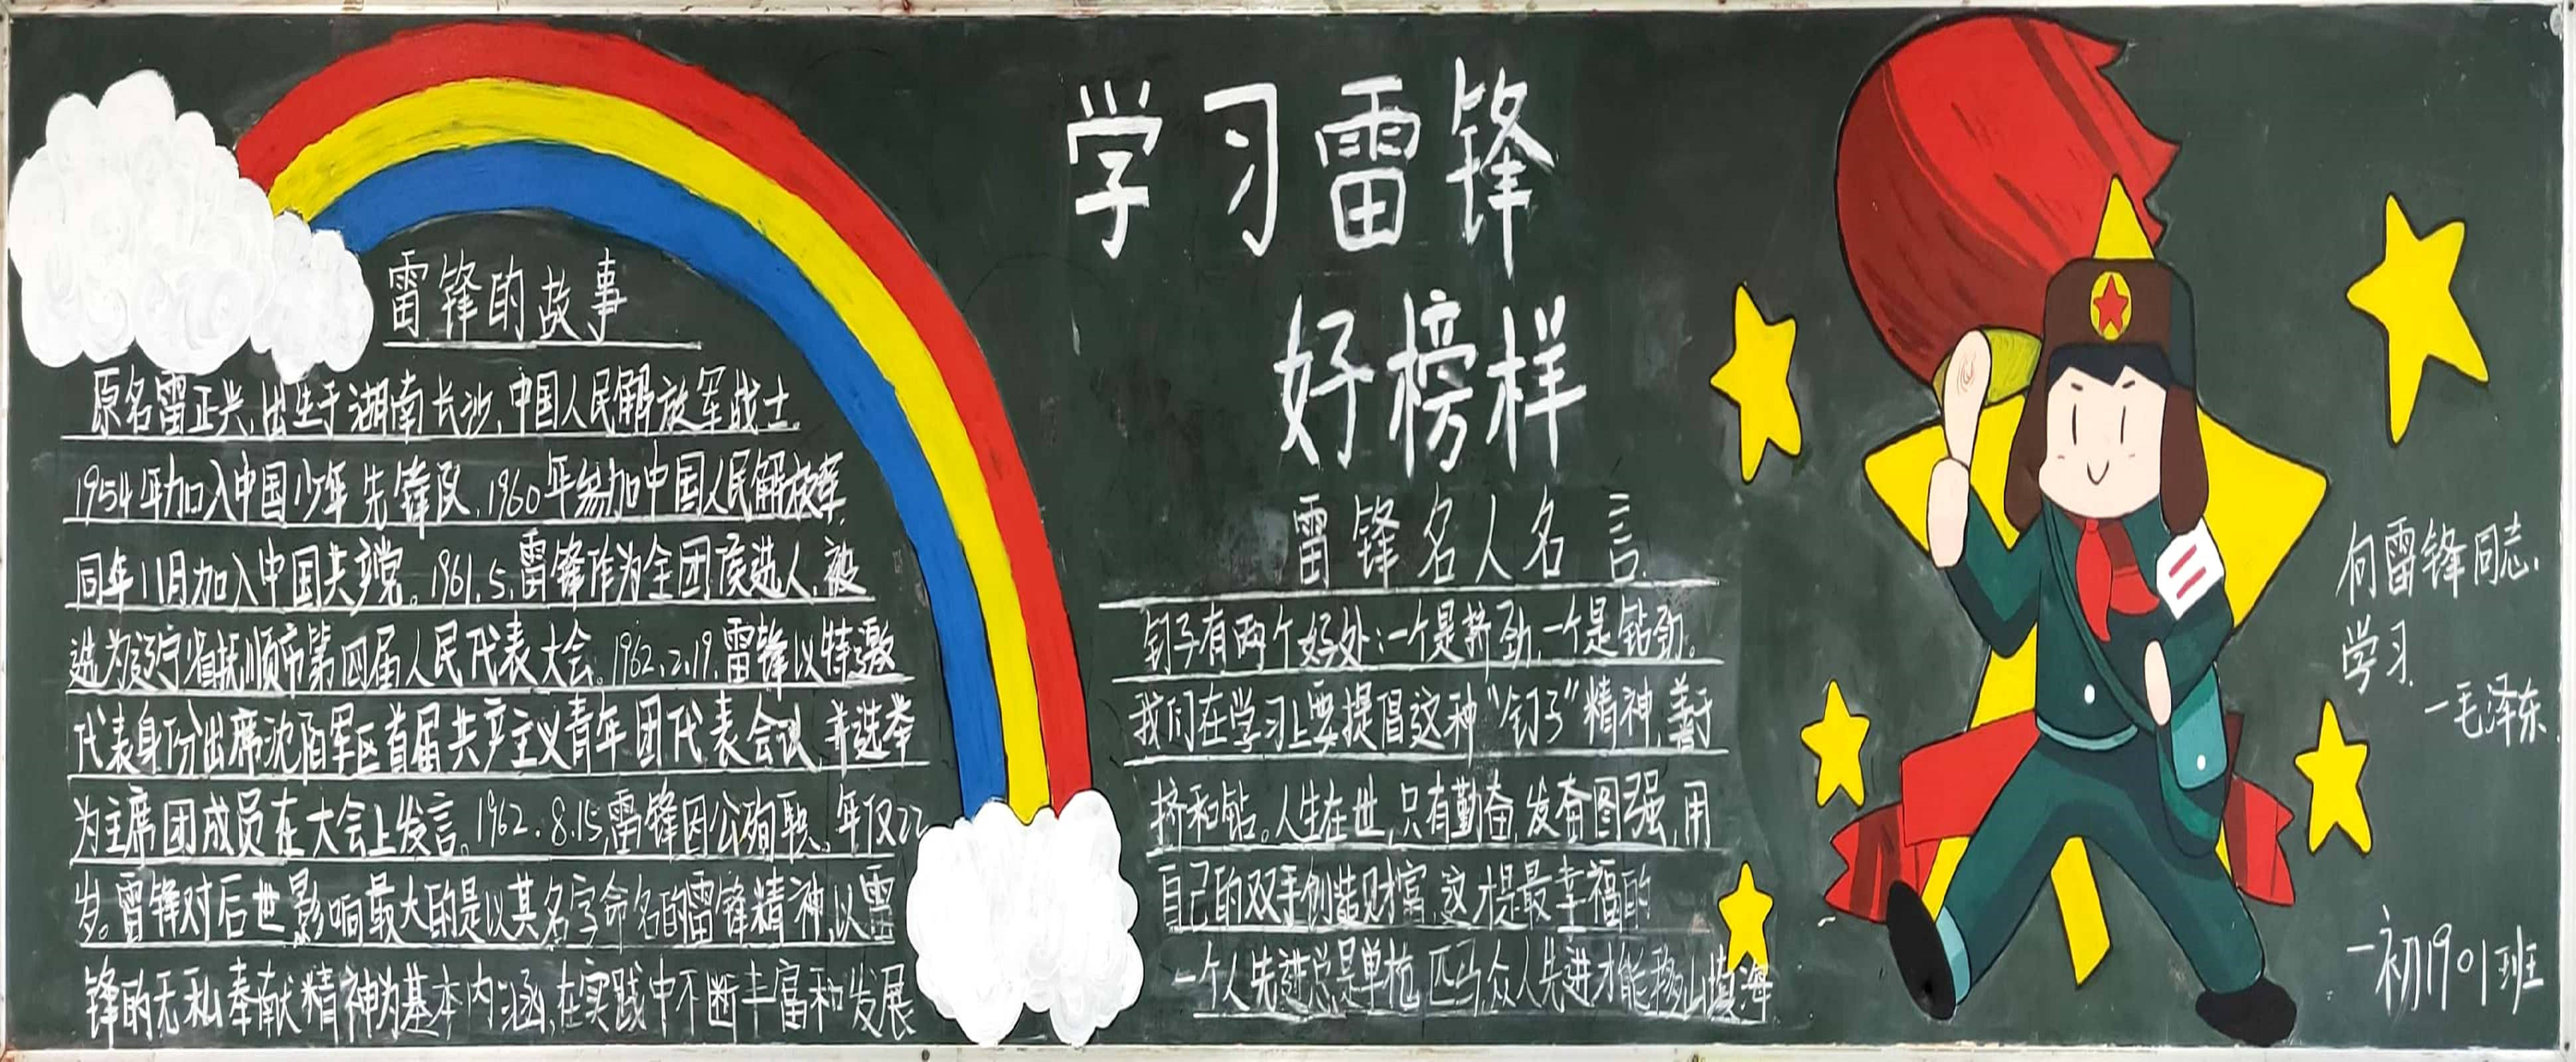 学习雷锋
好榜样
雷锋的故事
原名雷正兴,出生于湖南长沙,中国人民解放军战士。
1954年加入中国少年先锋队,1960年参加中国人民解放军,
同年11月加入中国共产党。1961.5,雷锋作为全团候选人,被
选为辽宁省抚顺市第四届人民代表大会。1962.2.19,雷锋以特邀
代表身份出席沈阳军区首届共产主义青年团代表会议,并选举
为主席团成员在大会上发言。1962.8.15,雷锋因公殉职,年仅22
岁。雷锋对后世影响最大的是以其名字命名的雷锋精神,以雷
锋的无私奉献精神为基本内涵,在实践中不断丰富和发展
雷锋名人名言
钉子有两个好处:一个是挤劲,一个是钻劲。
我们在学习上要提倡这种“钉子”精神,善于
挤和钻。人生在世,只有勤奋,发奋图强,用
自己的双手创造财富,这才是最幸福的
一个人先进总是单枪匹马,众人先进才能移山填海
向雷锋同志
学习
—毛泽东
—初1901班